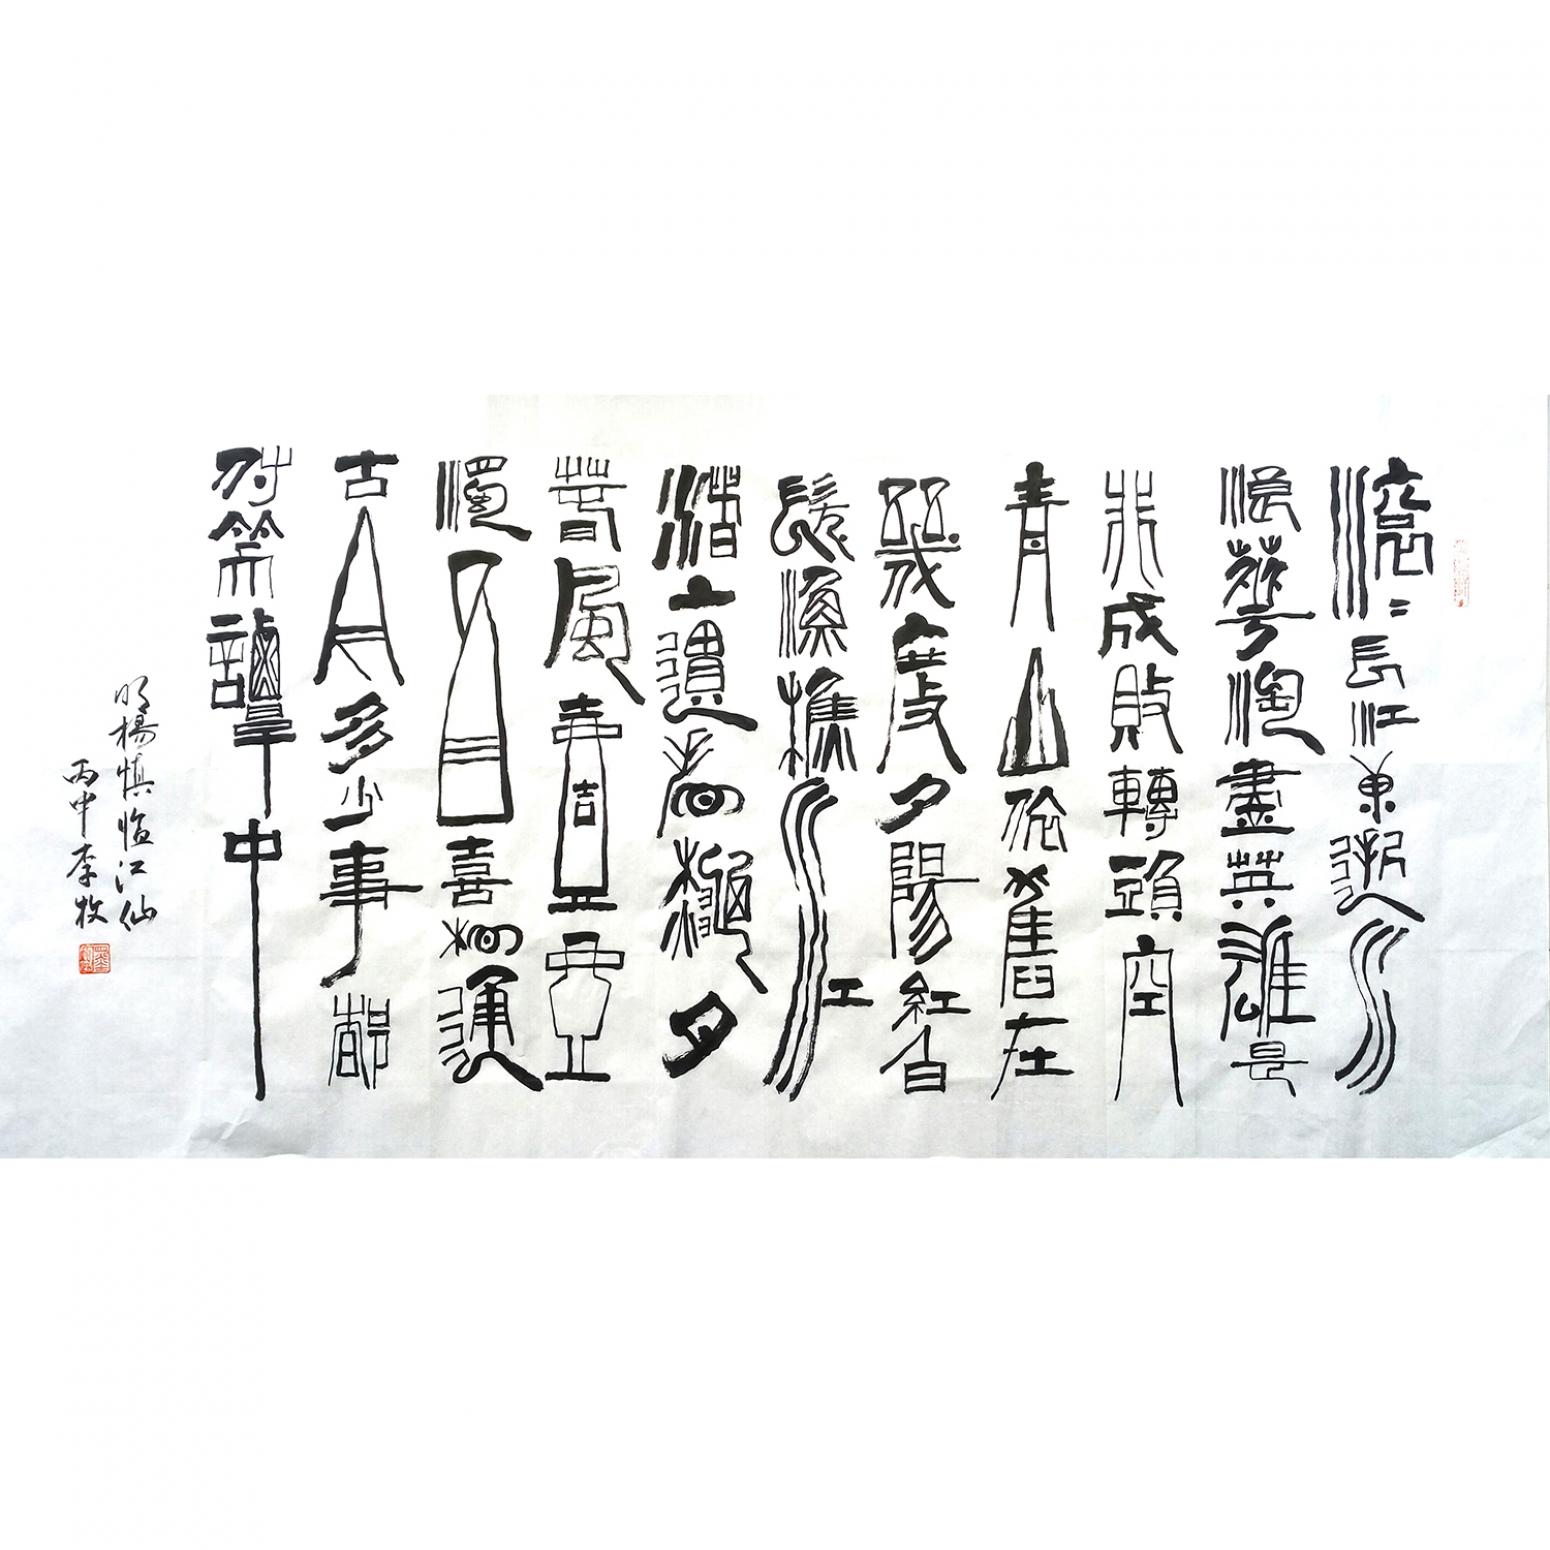 滾〻長江東逝水
浪華淘盡英雄是
非成敗轉頭空
青山依舊在
幾度夕陽紅白
髮漁樵江
渚上遦看龝月
春風壹壺
濁酒喜相逢
古今多少事都
付笑譚中
明楊慎臨江仙
丙申李牧